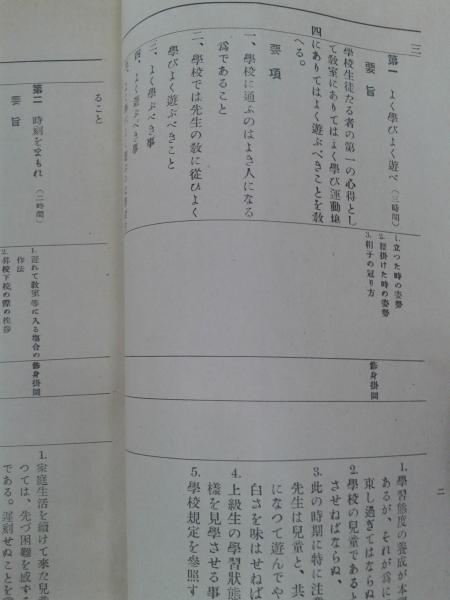 三
第一　よく學びよく遊べ（三時間）
要旨
學校生徒たる者の第一の心得とし
て教室にありてはよく學び運動場
にありてはよく遊ぶべきことを敎
へる。
四
要項
一、學校に通ふのはよき人になる
爲であること
二、學校では先生の敎に從ひよく
學びよく遊ぶべきこと
三、よく學ぶべき事
四、よく遊ぶべき事
1. 立つた時の姿勢
2. 腰掛けた時の姿勢
3. 帽子の冠り方
修身掛圖
二
1. 學習態度の養成が本
あるが、それが爲に
束し過ぎてはならぬ
2. 學校の兒童であると
させねばならぬ、
3. 此の時期に特に注意
先生は兒童と、共
になつて遊んでや
白さを味はせねば
4. 上級生の學習狀態
樣を見學させる事
5. 學校規定を參照す
ること
第二　時刻をまもれ（二時間）
要旨
1. 遲れて敎室等に入る場合の
作法
2. 昇校下校の際の挨拶
修身掛圖
1. 家庭生活を續けて來た兒童
つては、先づ困難を感する
である。遲刻せぬことを